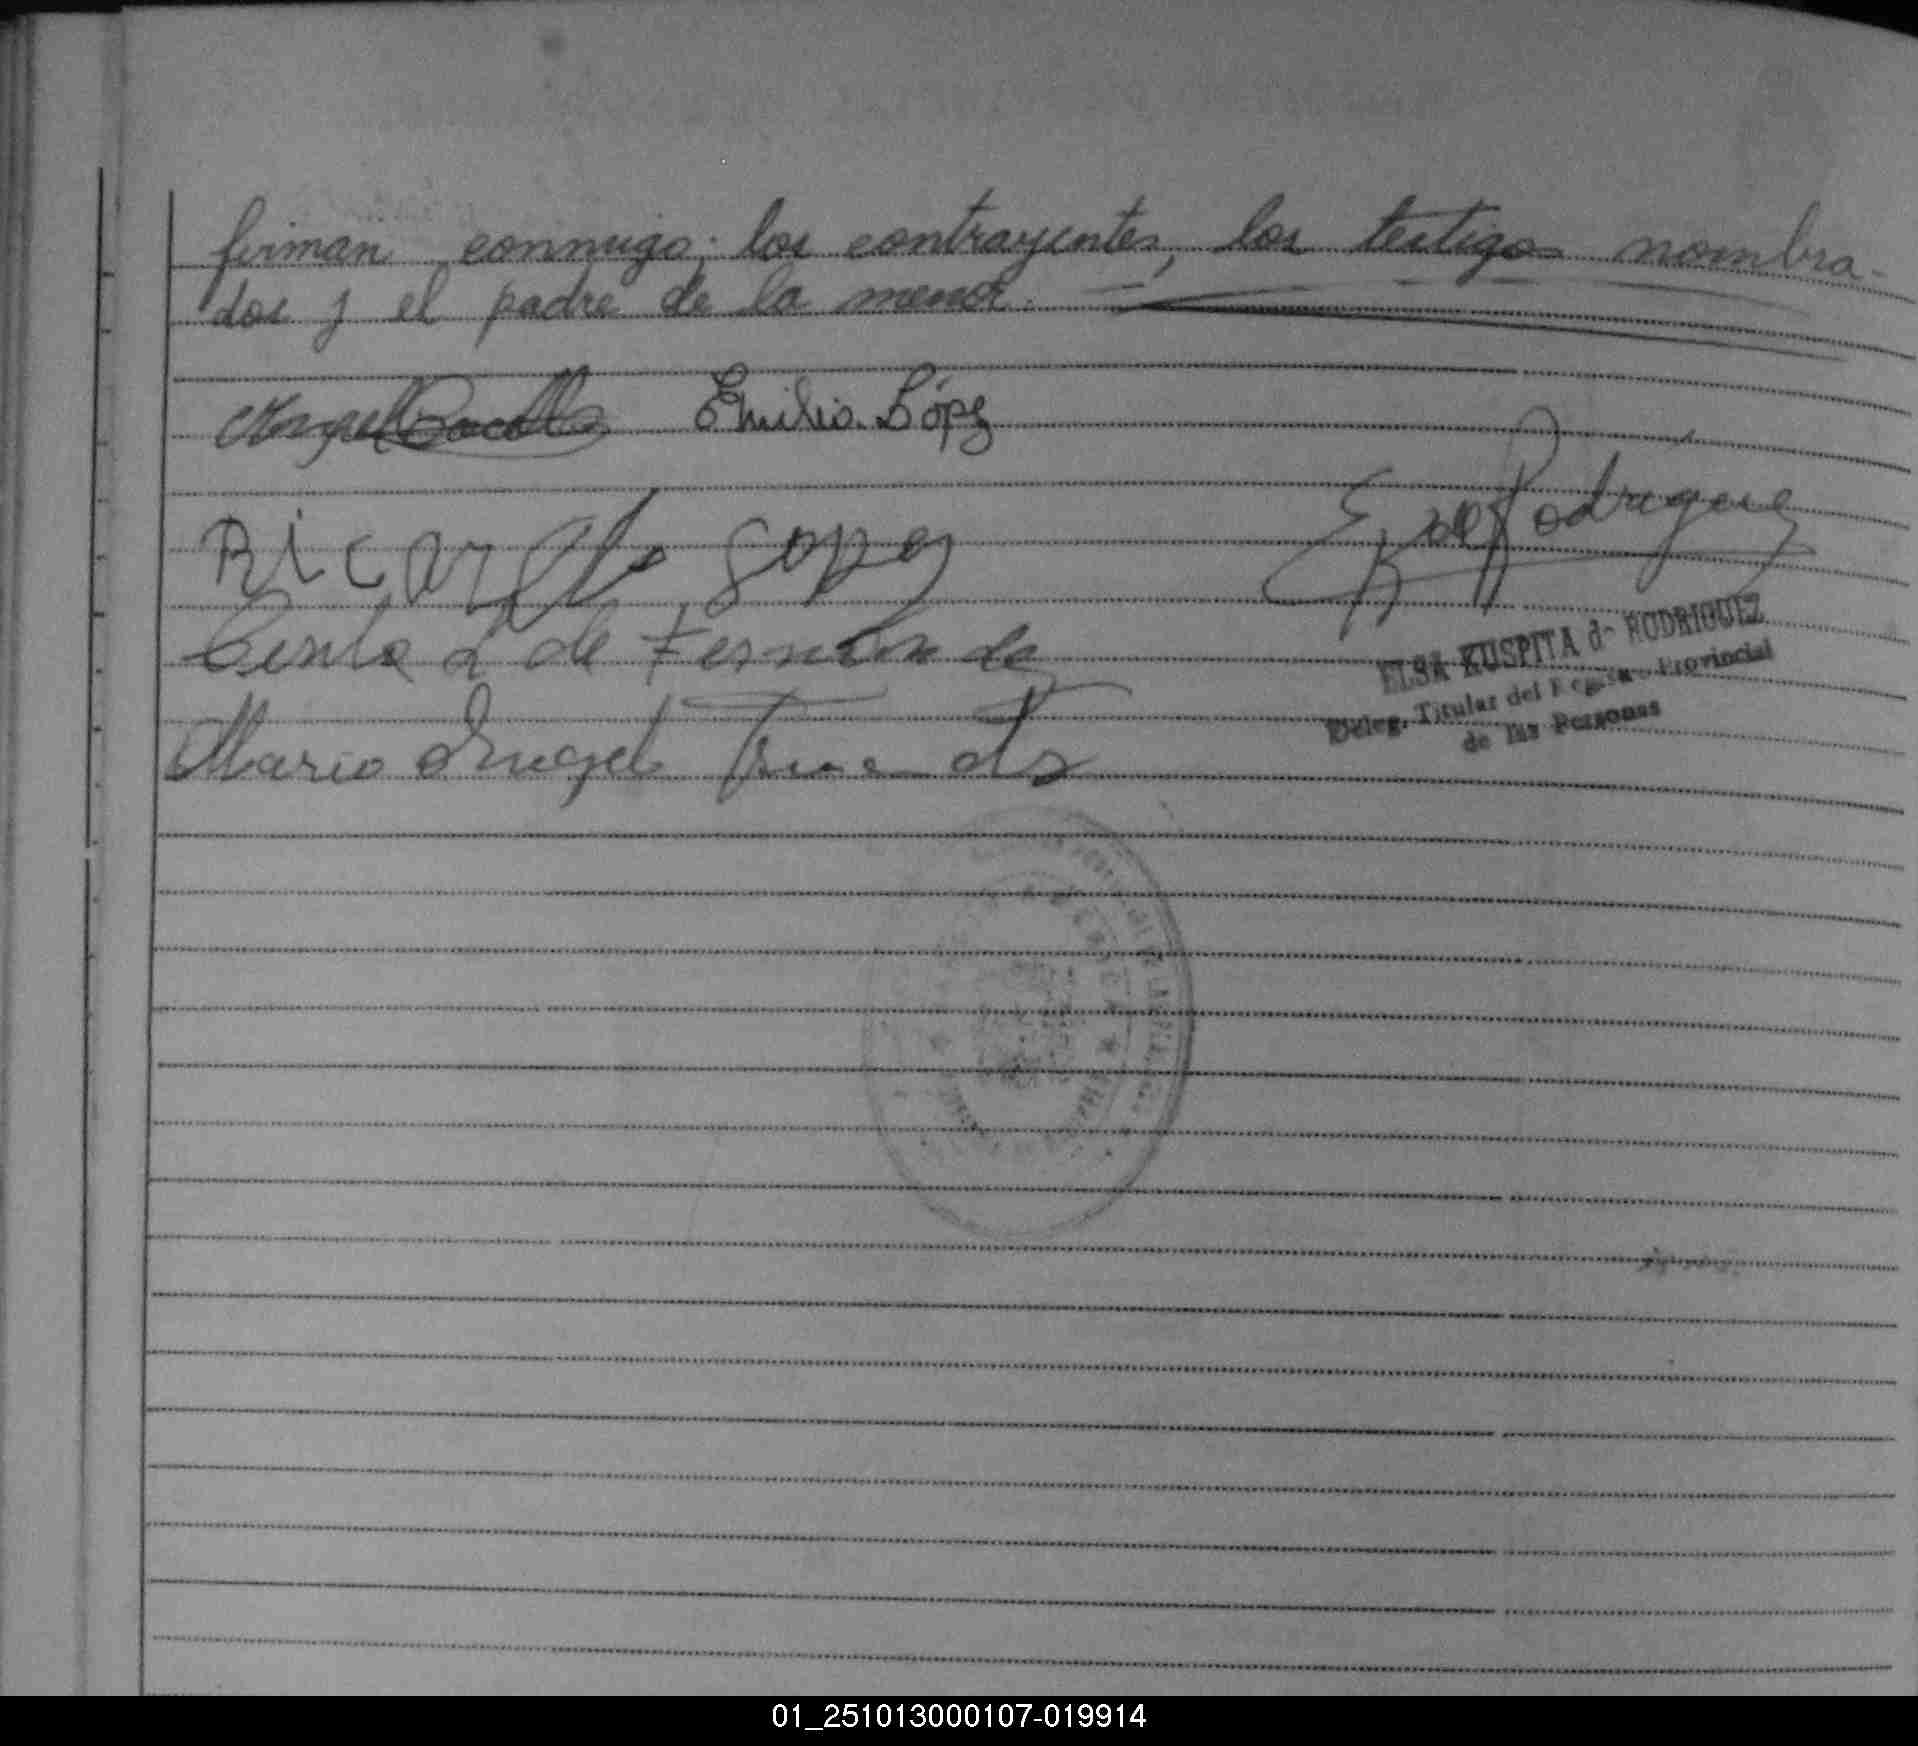 firman conmigo; los contrayentes, los testigos nombra-
dos y el padre de la menor.
Angel Emilia López
Ricardo Lopez
E K de Rodriguez
L de Fernandez
Mario Angel Fernandez
ELSA KUSPITA de RODRIGUEZ
Deleg. Titular del Registro Provincial
de las Personas
01_251013000107-019914